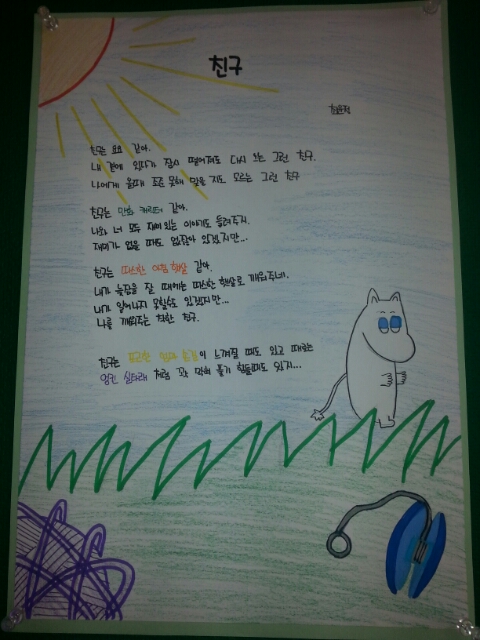 친구
친구는 요요 같아.
내 곁에 있다가 잠시 떨어져도 다시 오는 그런 친구.
나에게 올때 조준 못해 맞을 지도 모르는 그런 친구
친구는 만화 캐릭터 같아.
나와 너 모두 재미있는 이야기도 들려주지.
재미가 없을 때도 없잖아 있겠지만...
친구는 따스한 아침 햇살 같아.
내가 늦잠을 잘 때에는 따스한 햇살로 깨워주네.
내가 일어나지 못할수도 있겠지만...
나를 깨워주는 착한 친구.
친구는 포근한 엄마 손길이 느껴질 때도 있고 때로는
엉킨 실타래 처럼 꼬여 풀기 힘들때도 있지...